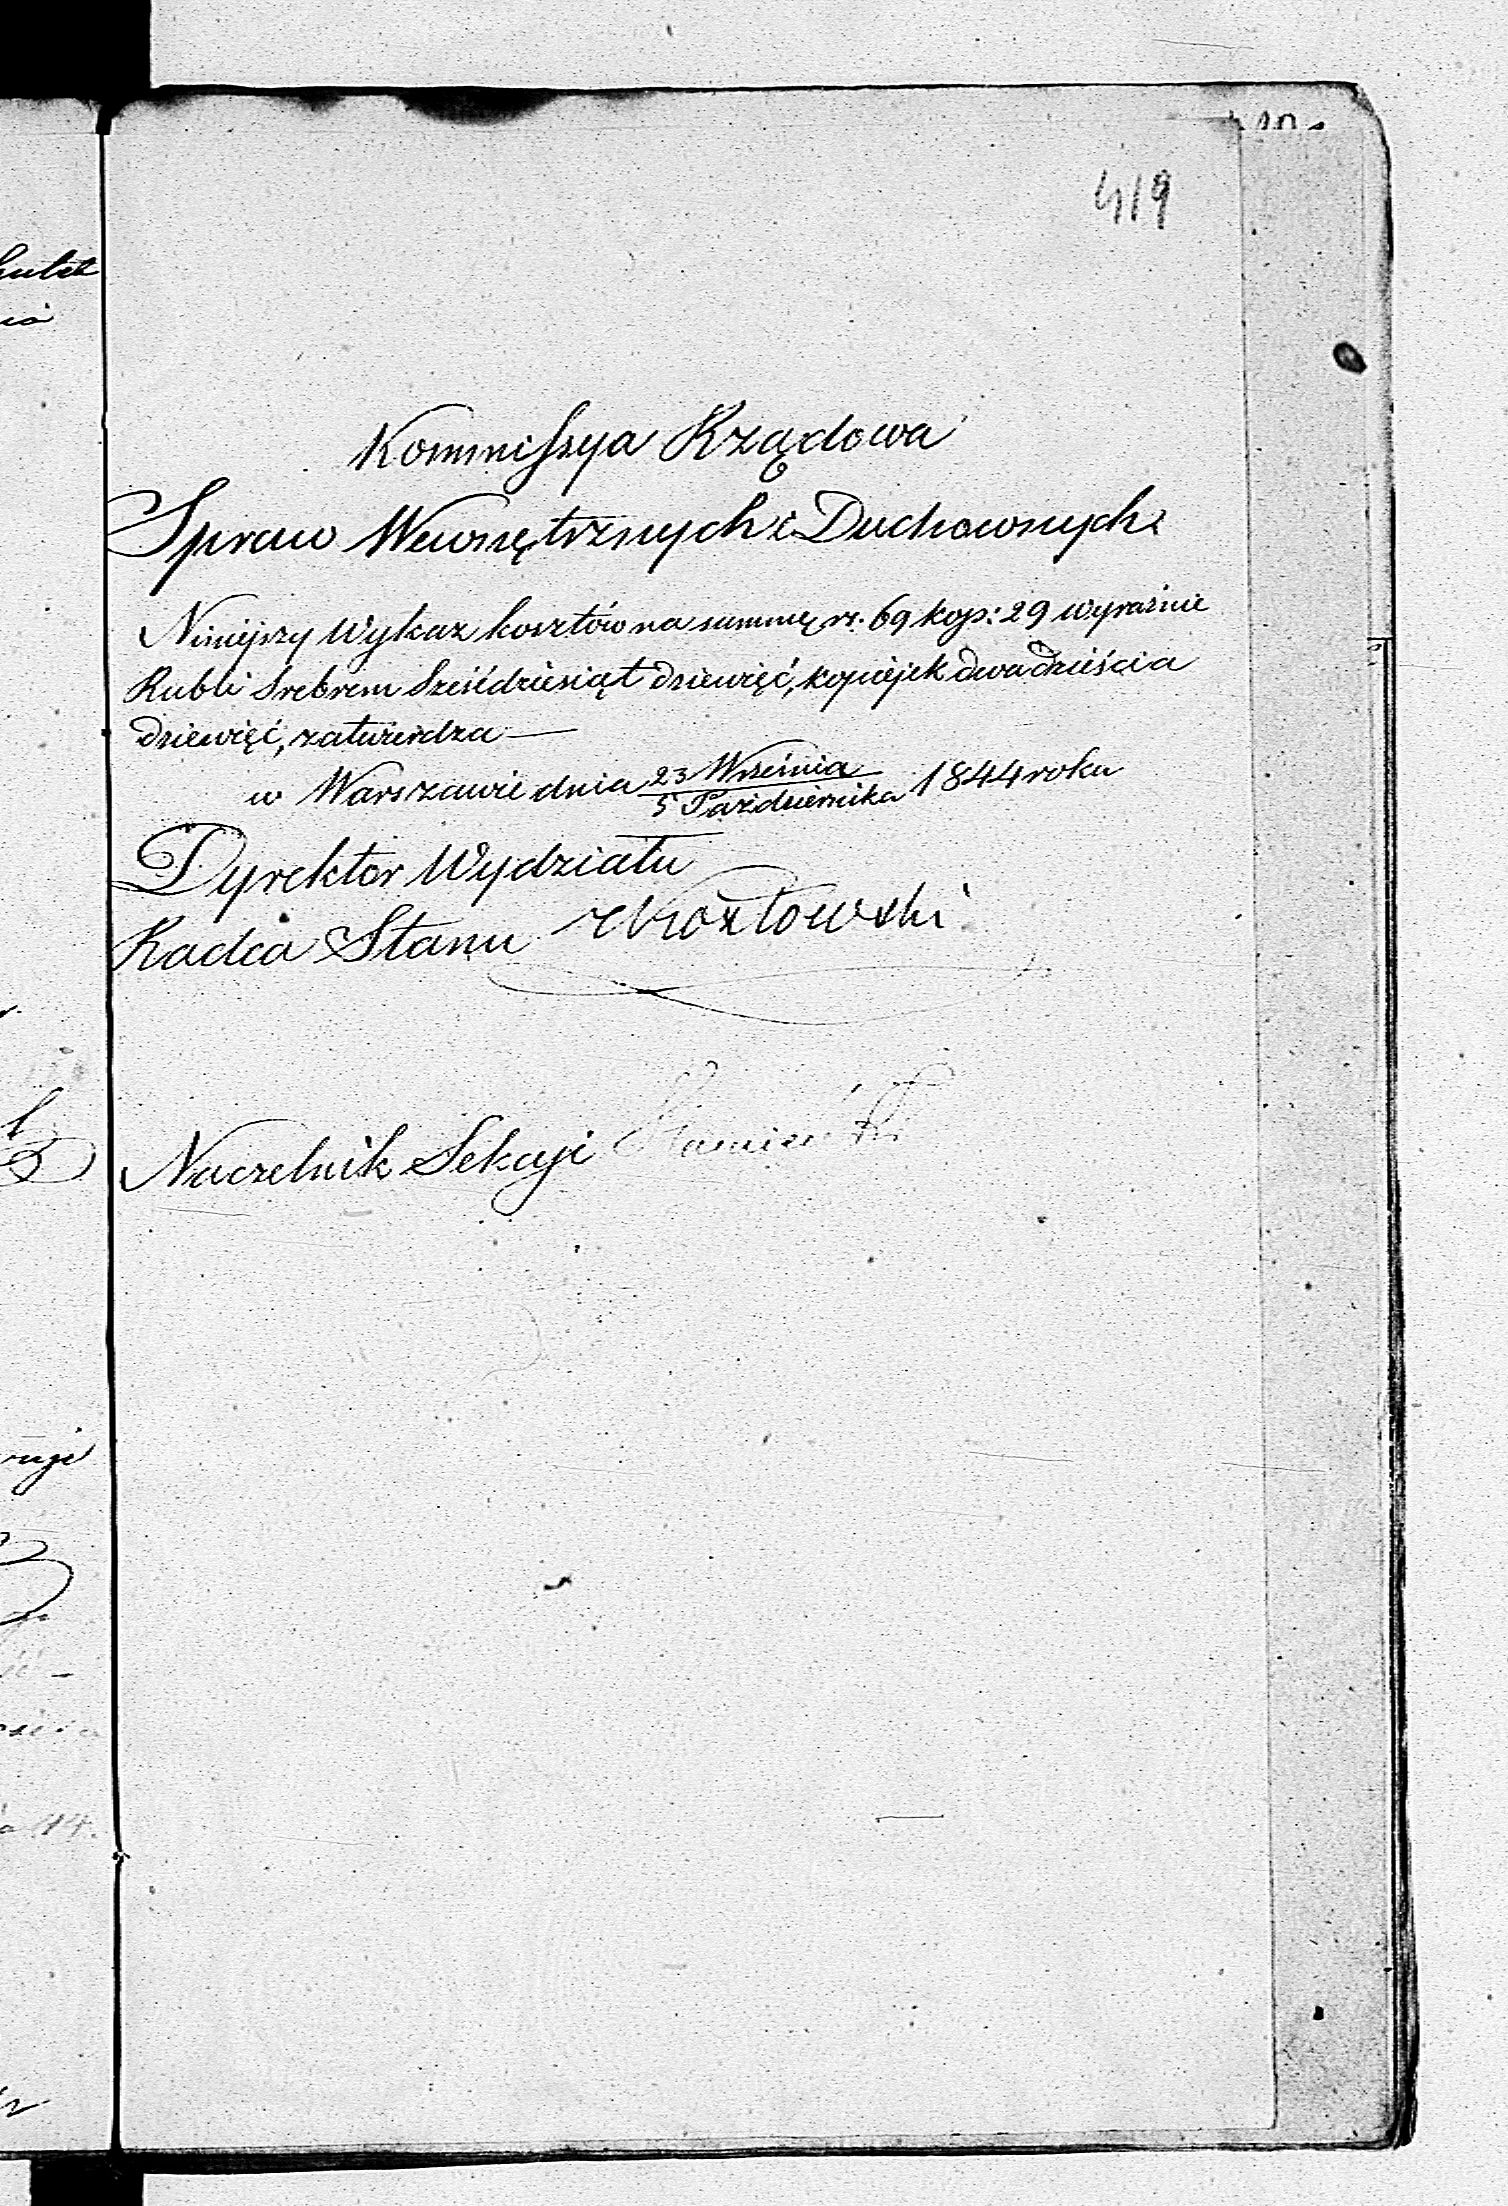 419
Kommissya Rządowa
Spraw Wewnętrznych i Duchownych
Niniejszy Wykaz kosztów na summę rs. 69 kop: 29 wyraźnie
Rubli Srebrem Sześćdziesiąt dziewięć, kopiejek dwadzieścia
dziewięć, zatwierdza —
w Warszawie dnia 23 Września / 5 Października 1844 roku
Dyrektor Wydziału
Radca Stanu Kozłowski
Naczelnik Sekcyi